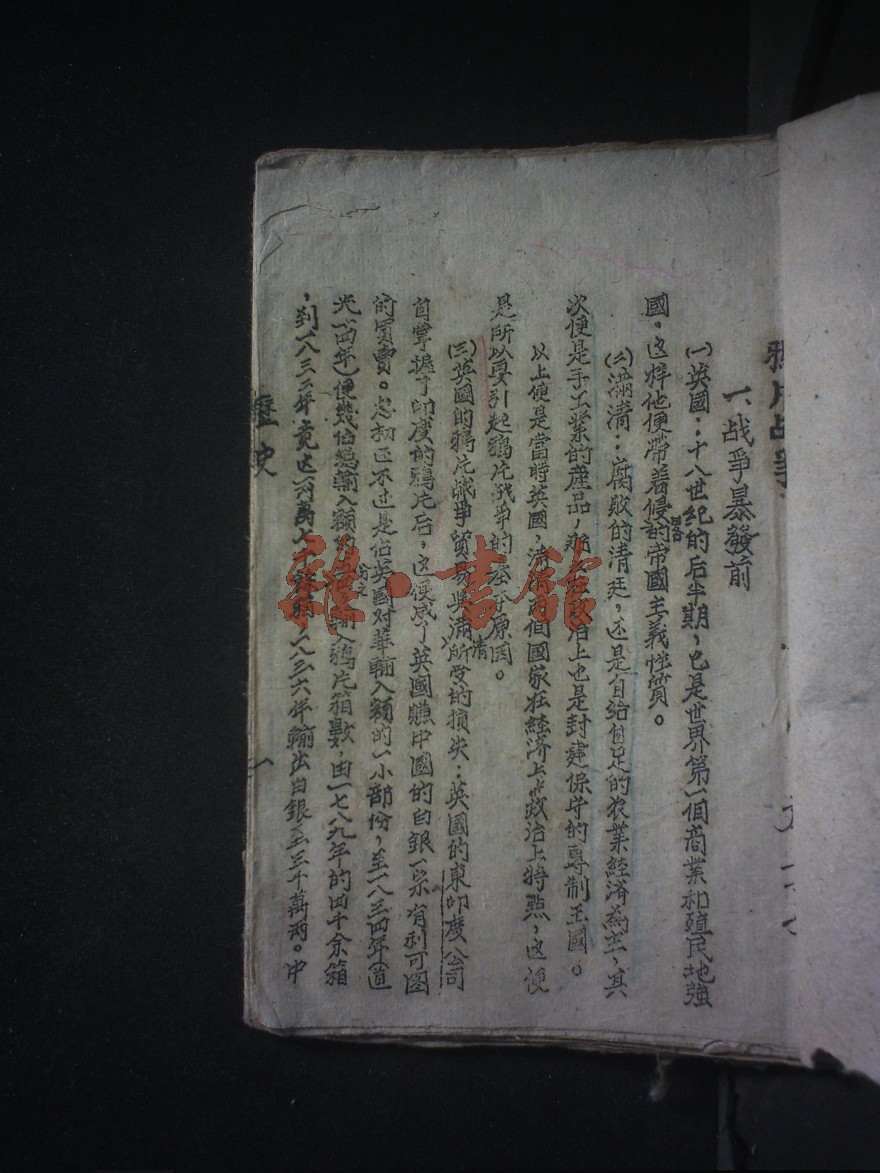 鴉片战争
一、战爭暴發前
㈠英國：十八世紀的后半期，已是世界第一個商業和殖民地強
國，这样他便帶着侵略的帝國主義性質。
㈡滿清：腐敗的清廷，还是自給自足的农業經済為主，其
次便是手工業的產品，那么在政治上也是封建保守的專制王國。
以上便是當時英國，滿清兩個國家在經済上政治上特点，这便
是所以要引起鴉片战爭的基本原因。
㈢英國的鴉片战爭貿易與滿清所受的損失：英國的東印度公司
自掌握了印度的鴉片后，这便成了英國賺中國的白銀一宗有利可图
的買賣。起初还不过是佔英國对華輸入額的一小部份，至一八三四年（道
光一四年）便幾佔總輸入額的 輸入鴉片箱數，由一七八九年的四千余箱
，到一八三二年竟达 萬七千 一八三六年輸出白銀至三千萬两。中
歷史 一
雜·書館